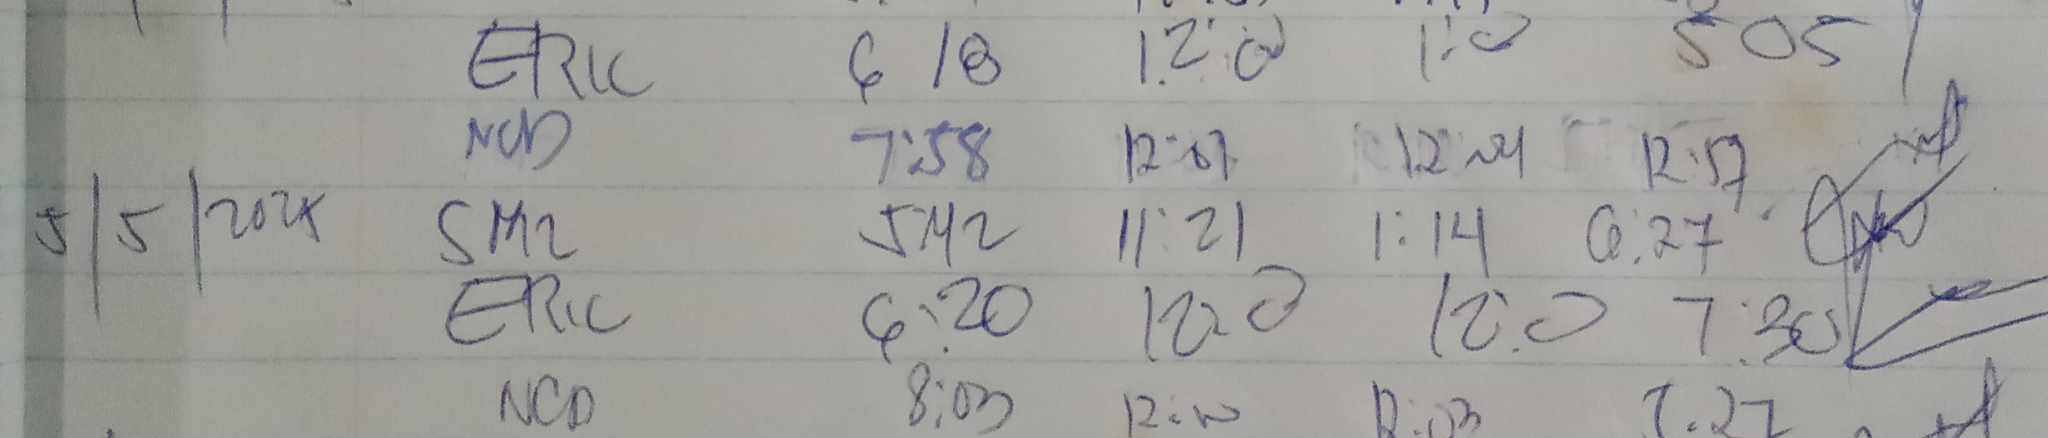 ERIC 6 18 12:0 1:0 5 05
NCD 7:58 12:01 12:04 12:57
5/5/2025 SM2 5:42 11:21 1:14 6:27
ERIC 6:20 12:0 12:0 7:30
NCD 8:03 12:00 12:03 7:27